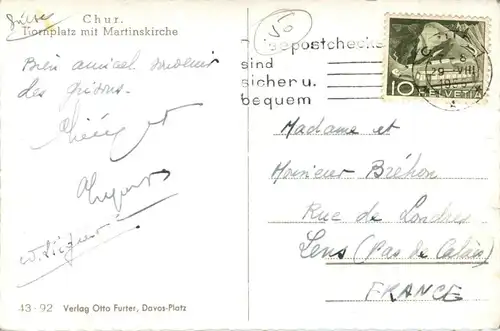 Suisse
Chur.
Tiornplatz mit Martinskirche
Bien amical souvenir
des Grisons.
Reisepostchecks
sind
sicher u.
bequem
29 VIII
10 HELVETIA
Madame et
Monsieur Bréhon
Rue de Londres
Lens (Pas de Calais)
FRANCE
43-92 Verlag Otto Furter, Davos-Platz